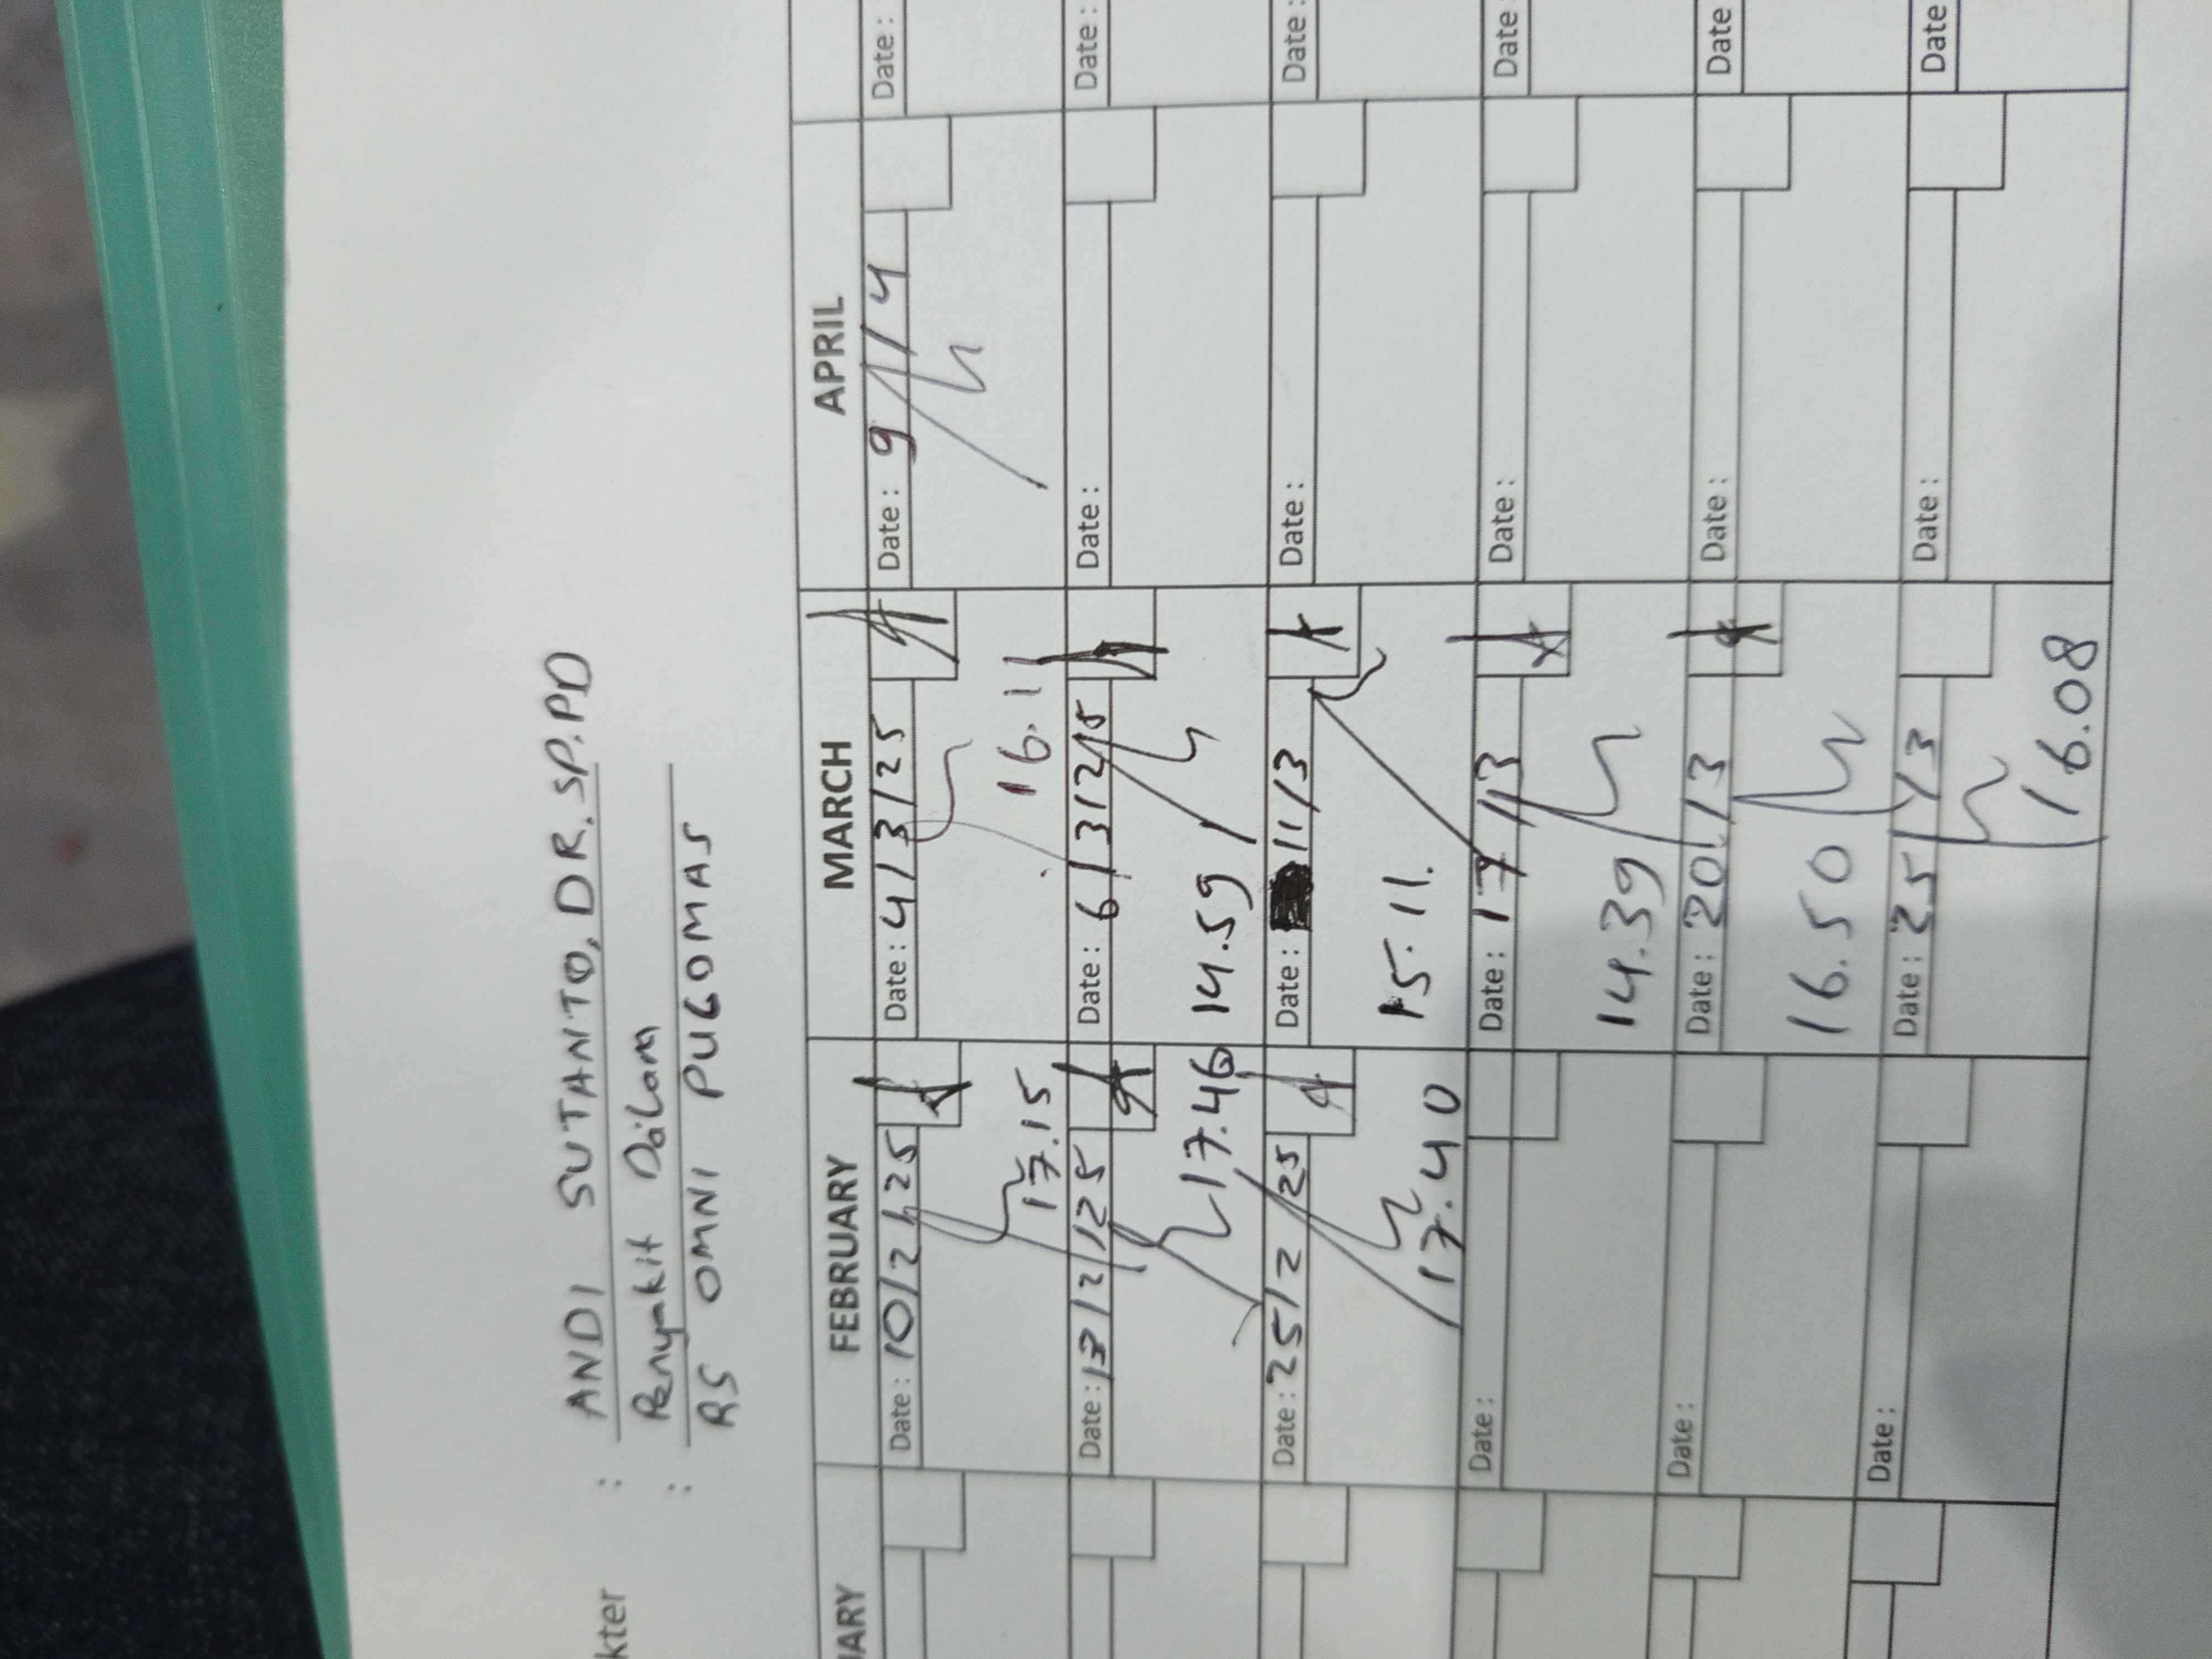 kter : ANDI SUTANTO, DR. SP.PD
: Penyakit Dalam
RS OMNI PULOMAS
UARY FEBRUARY MARCH APRIL
Date : 10/2/25 Date : 4/3/25 Date : 9/4 Date :
17.15 16.11
Date : 13/2/25 Date : 6/3/25 Date : Date :
17.46 14.59
Date : 25/2 25 Date : 11/3 Date : Date :
17.40 15.11.
Date : Date : 17/3 Date : Date
14.39
Date : Date : 20/3 Date : Date
16.50
Date : Date : 25/3 Date : Date
16.08